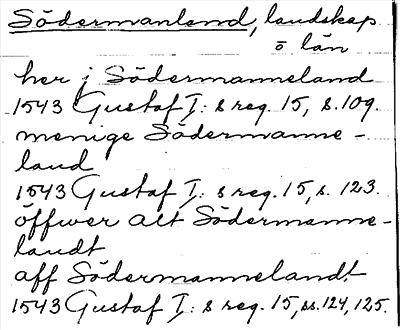 Södermanland, landskap
o län
her j Södermanneland
1543 Gustaf I: s reg. 15, s. 109.
menige Södermanne-
land
1543 Gustaf I: s reg. 15, s. 123.
öffwer alt Södermanne-
landt
aff Södermannelandt
1543 Gustaf I: s reg. 15, ss. 124, 125.